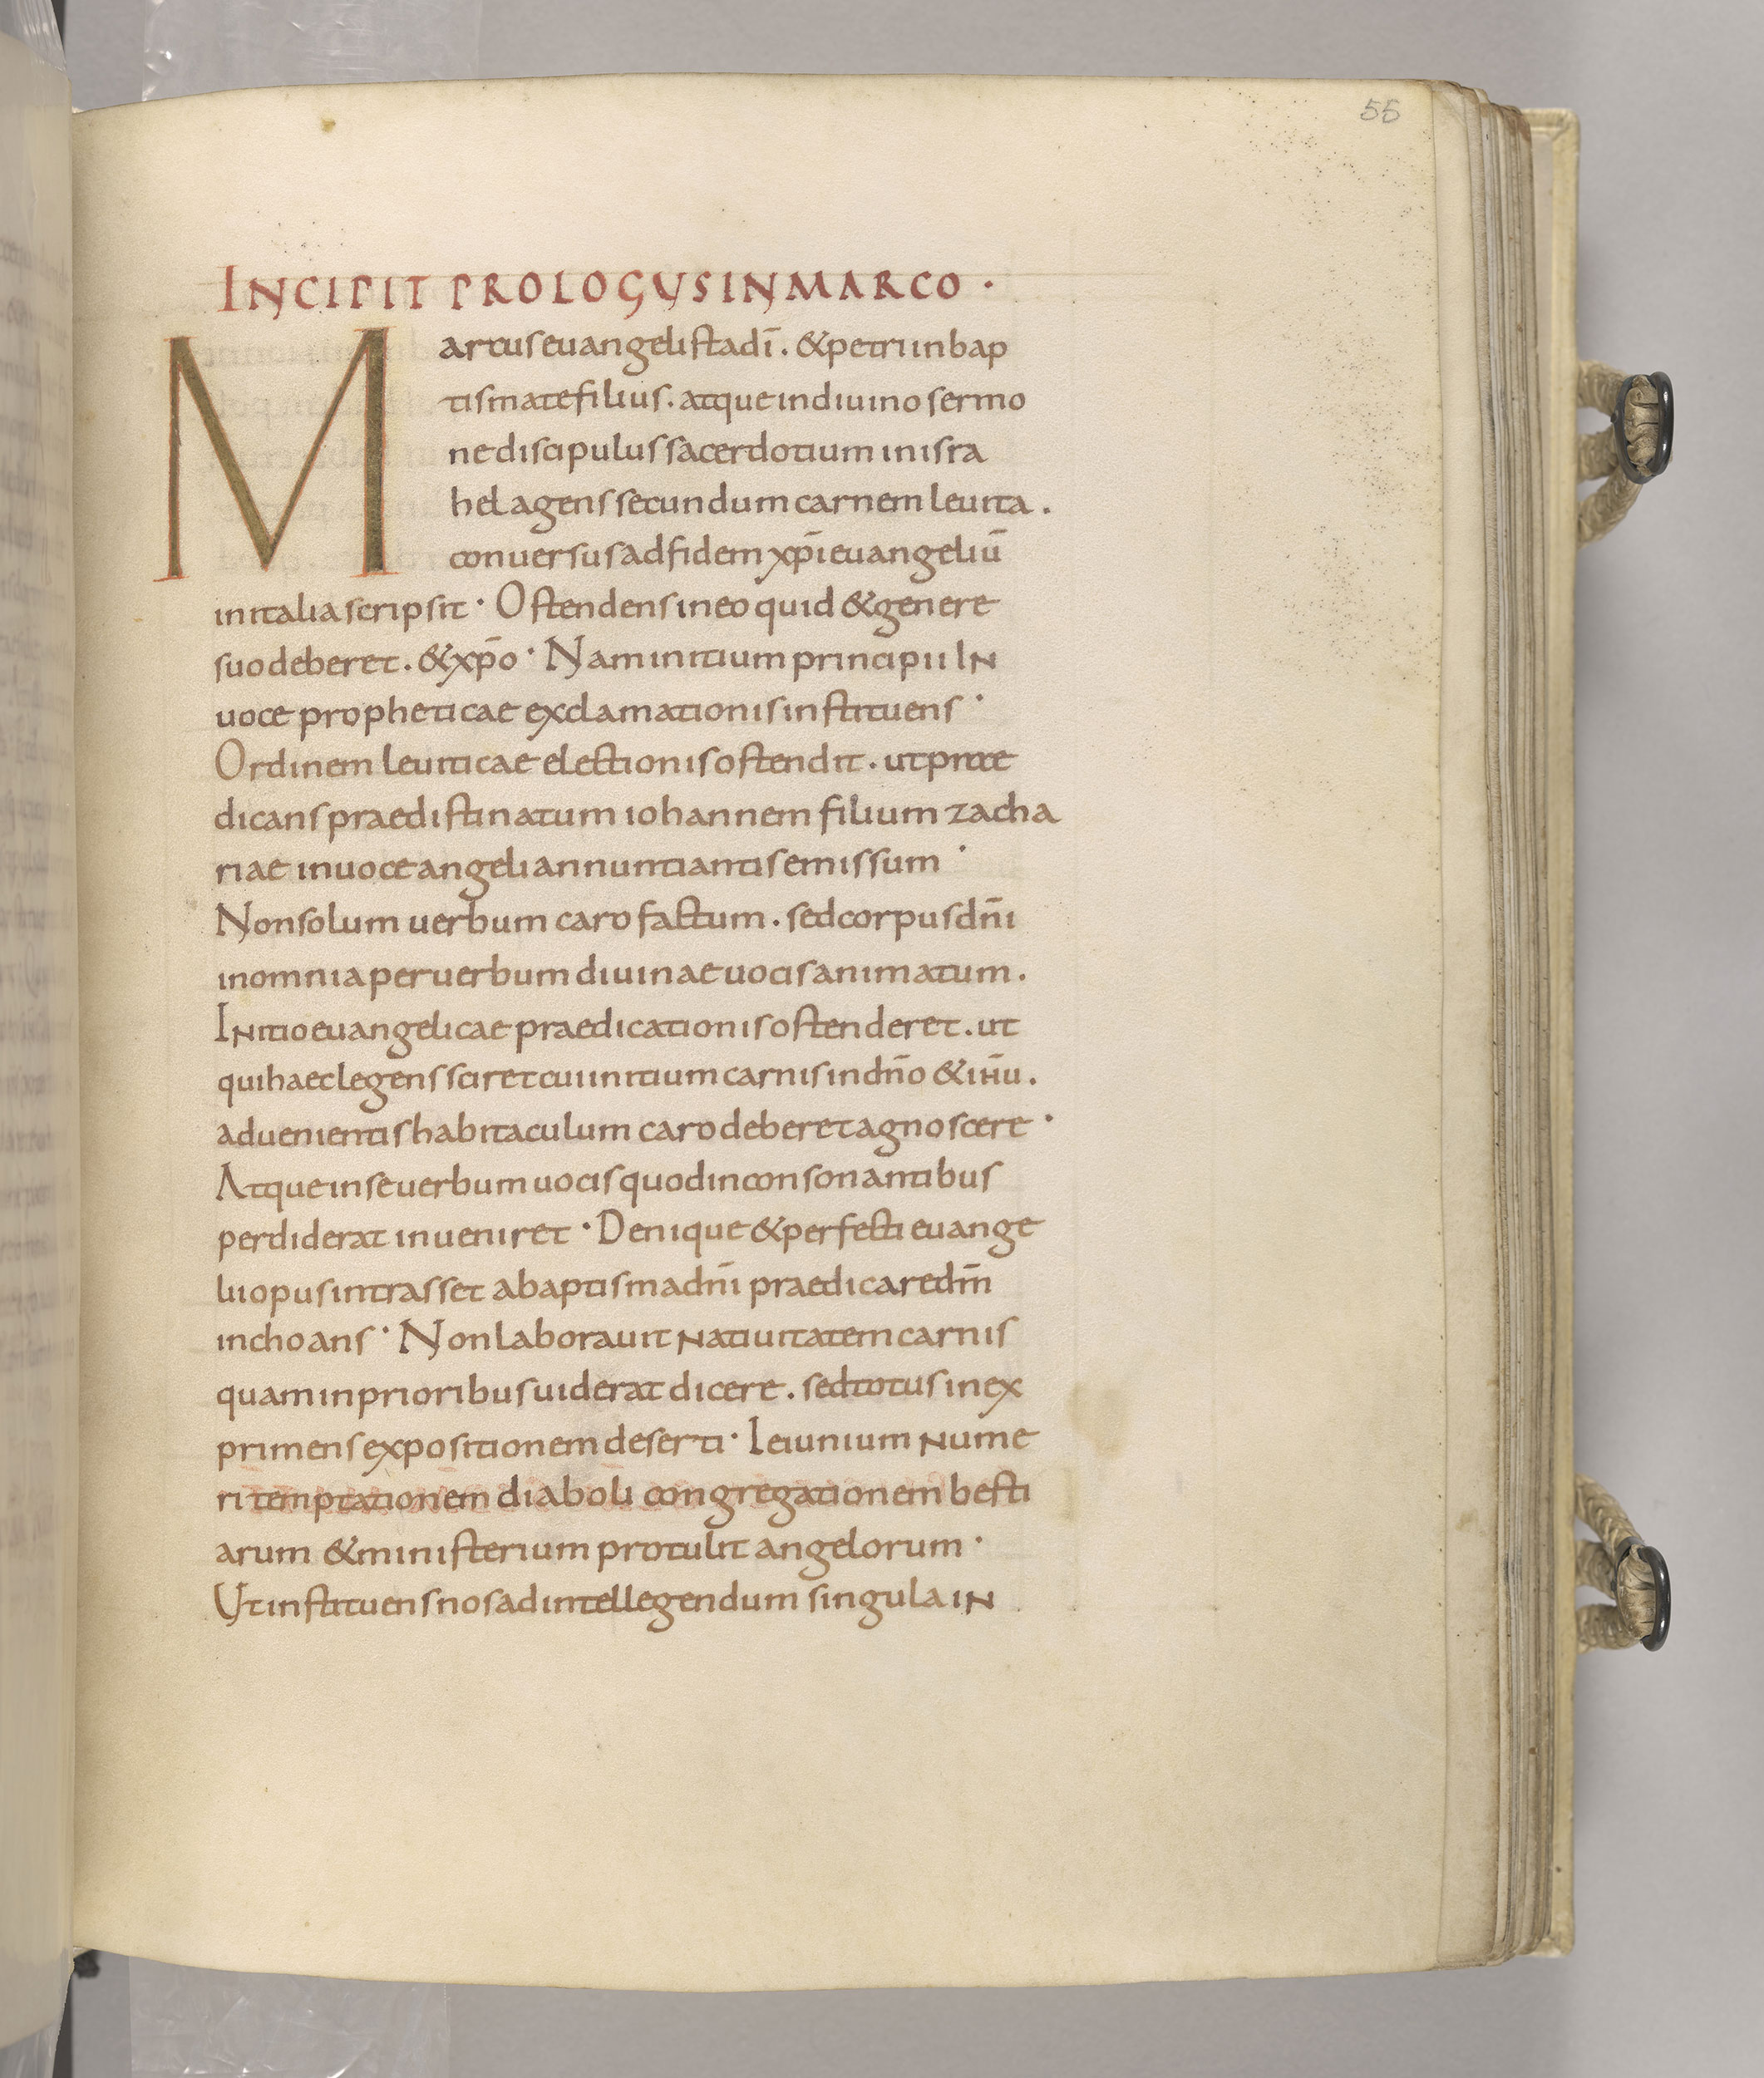 55
INCIPIT PROLOGUS IN MARCO ·
Marcus euangelista dī . & petri in bap
tismate filius . atque in diuino sermo
ne discipulus sacerdotium in isra
hel agens secundum carnem leuita .
conuersus ad fidem xp̄i euangeliū
in italia scripsit · Ostendens in eo quid & genere
suo deberet . & xp̄o · Nam initium principii IN
uoce propheticae exclamationis instituens ·
Ordinem leuiticae electionis ostendit . ut prae
dicans praedistinatum iohannem filium zacha
riae in uoce angeli annuntiantis emissum ·
Non solum uerbum caro factum . sed corpus dn̄i
in omnia per uerbum diuinae uocis animatum .
INitio euangelicae praedicationis ostenderet . ut
qui haec legens sciret cui initium carnis in dn̄o & ih̄u .
aduenientis habitaculum caro deberet agnoscere ·
Atque in se uerbum uocis quod in consonantibus
perdiderat inueniret · Denique & perfecti euange
lii opus intrasset a baptisma dn̄i praedicare dm̄
inchoans · Non laborauit Natiuitatem carnis
quam in prioribus uiderat dicere . sed totus in ex
primens expositionem deserti · Ieiunium Nume
ri temptationem diaboli congregationem besti
arum & ministerium protulit angelorum ·
Ut instituens nos ad intellegendum singula IN